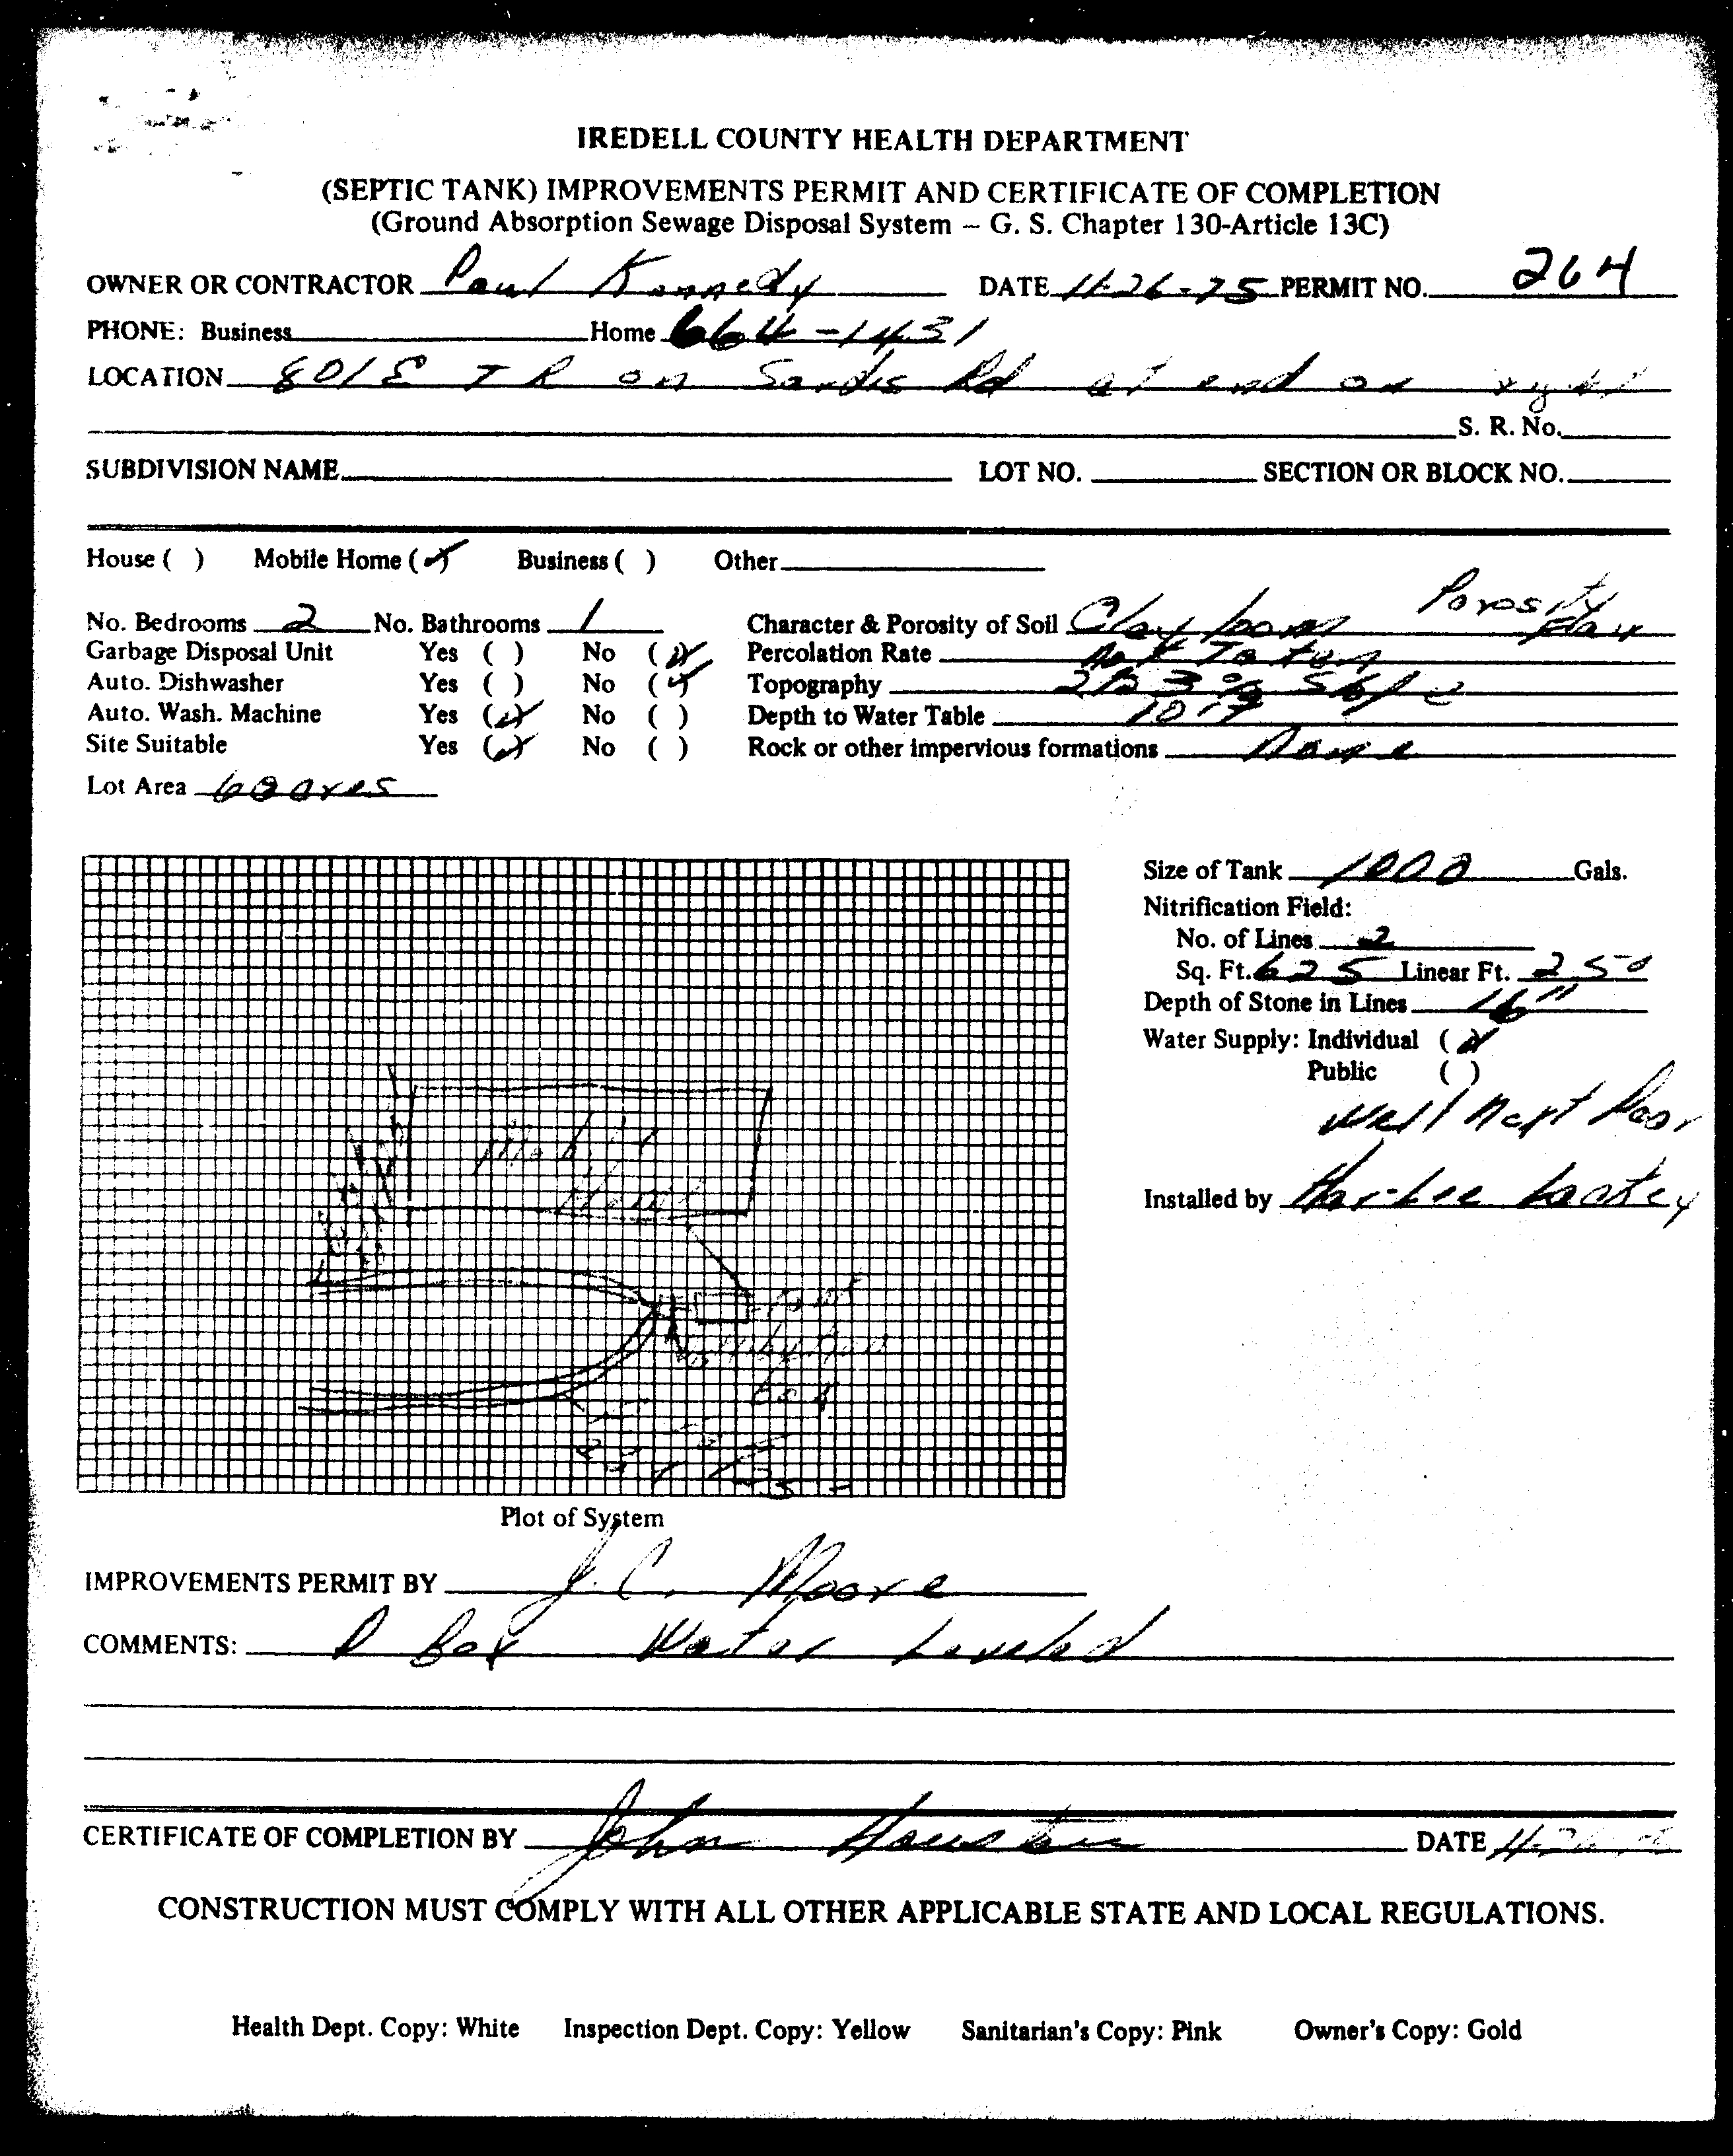 IREDELL COUNTY HEALTH DEPARTMENT
(SEPTIC TANK) IMPROVEMENTS PERMIT AND CERTIFICATE OF COMPLETION
(Ground Absorption Sewage Disposal System – G. S. Chapter 130-Article 13C)
OWNER OR CONTRACTOR Paul Kennedy DATE 11-26-75 PERMIT NO. 264
PHONE: Business Home 664-1431
LOCATION 801E T R on Sardis Rd at end on right
S. R. No.
SUBDIVISION NAME LOT NO. SECTION OR BLOCK NO.
House ( ) Mobile Home (✓) Business ( ) Other
No. Bedrooms 2 No. Bathrooms 1 Character & Porosity of Soil Clay loam Porosity
Garbage Disposal Unit Yes ( ) No (✓) Percolation Rate Not Taken
Auto. Dishwasher Yes ( ) No (✓) Topography 2 to 3 % Slope
Auto. Wash. Machine Yes (✓) No ( ) Depth to Water Table
Site Suitable Yes (✓) No ( ) Rock or other impervious formations None
Lot Area
Size of Tank 1000 Gals.
Nitrification Field:
No. of Lines 2
Sq. Ft. 625 Linear Ft. 250
Depth of Stone in Lines 16"
Water Supply: Individual (✓)
Public ( )
Well Next Door
Installed by
Mobile
Home
Box
Plot of System
IMPROVEMENTS PERMIT BY J. C. Moore
COMMENTS: D Box Water Leveled
CERTIFICATE OF COMPLETION BY John DATE
CONSTRUCTION MUST COMPLY WITH ALL OTHER APPLICABLE STATE AND LOCAL REGULATIONS.
Health Dept. Copy: White Inspection Dept. Copy: Yellow Sanitarian's Copy: Pink Owner's Copy: Gold